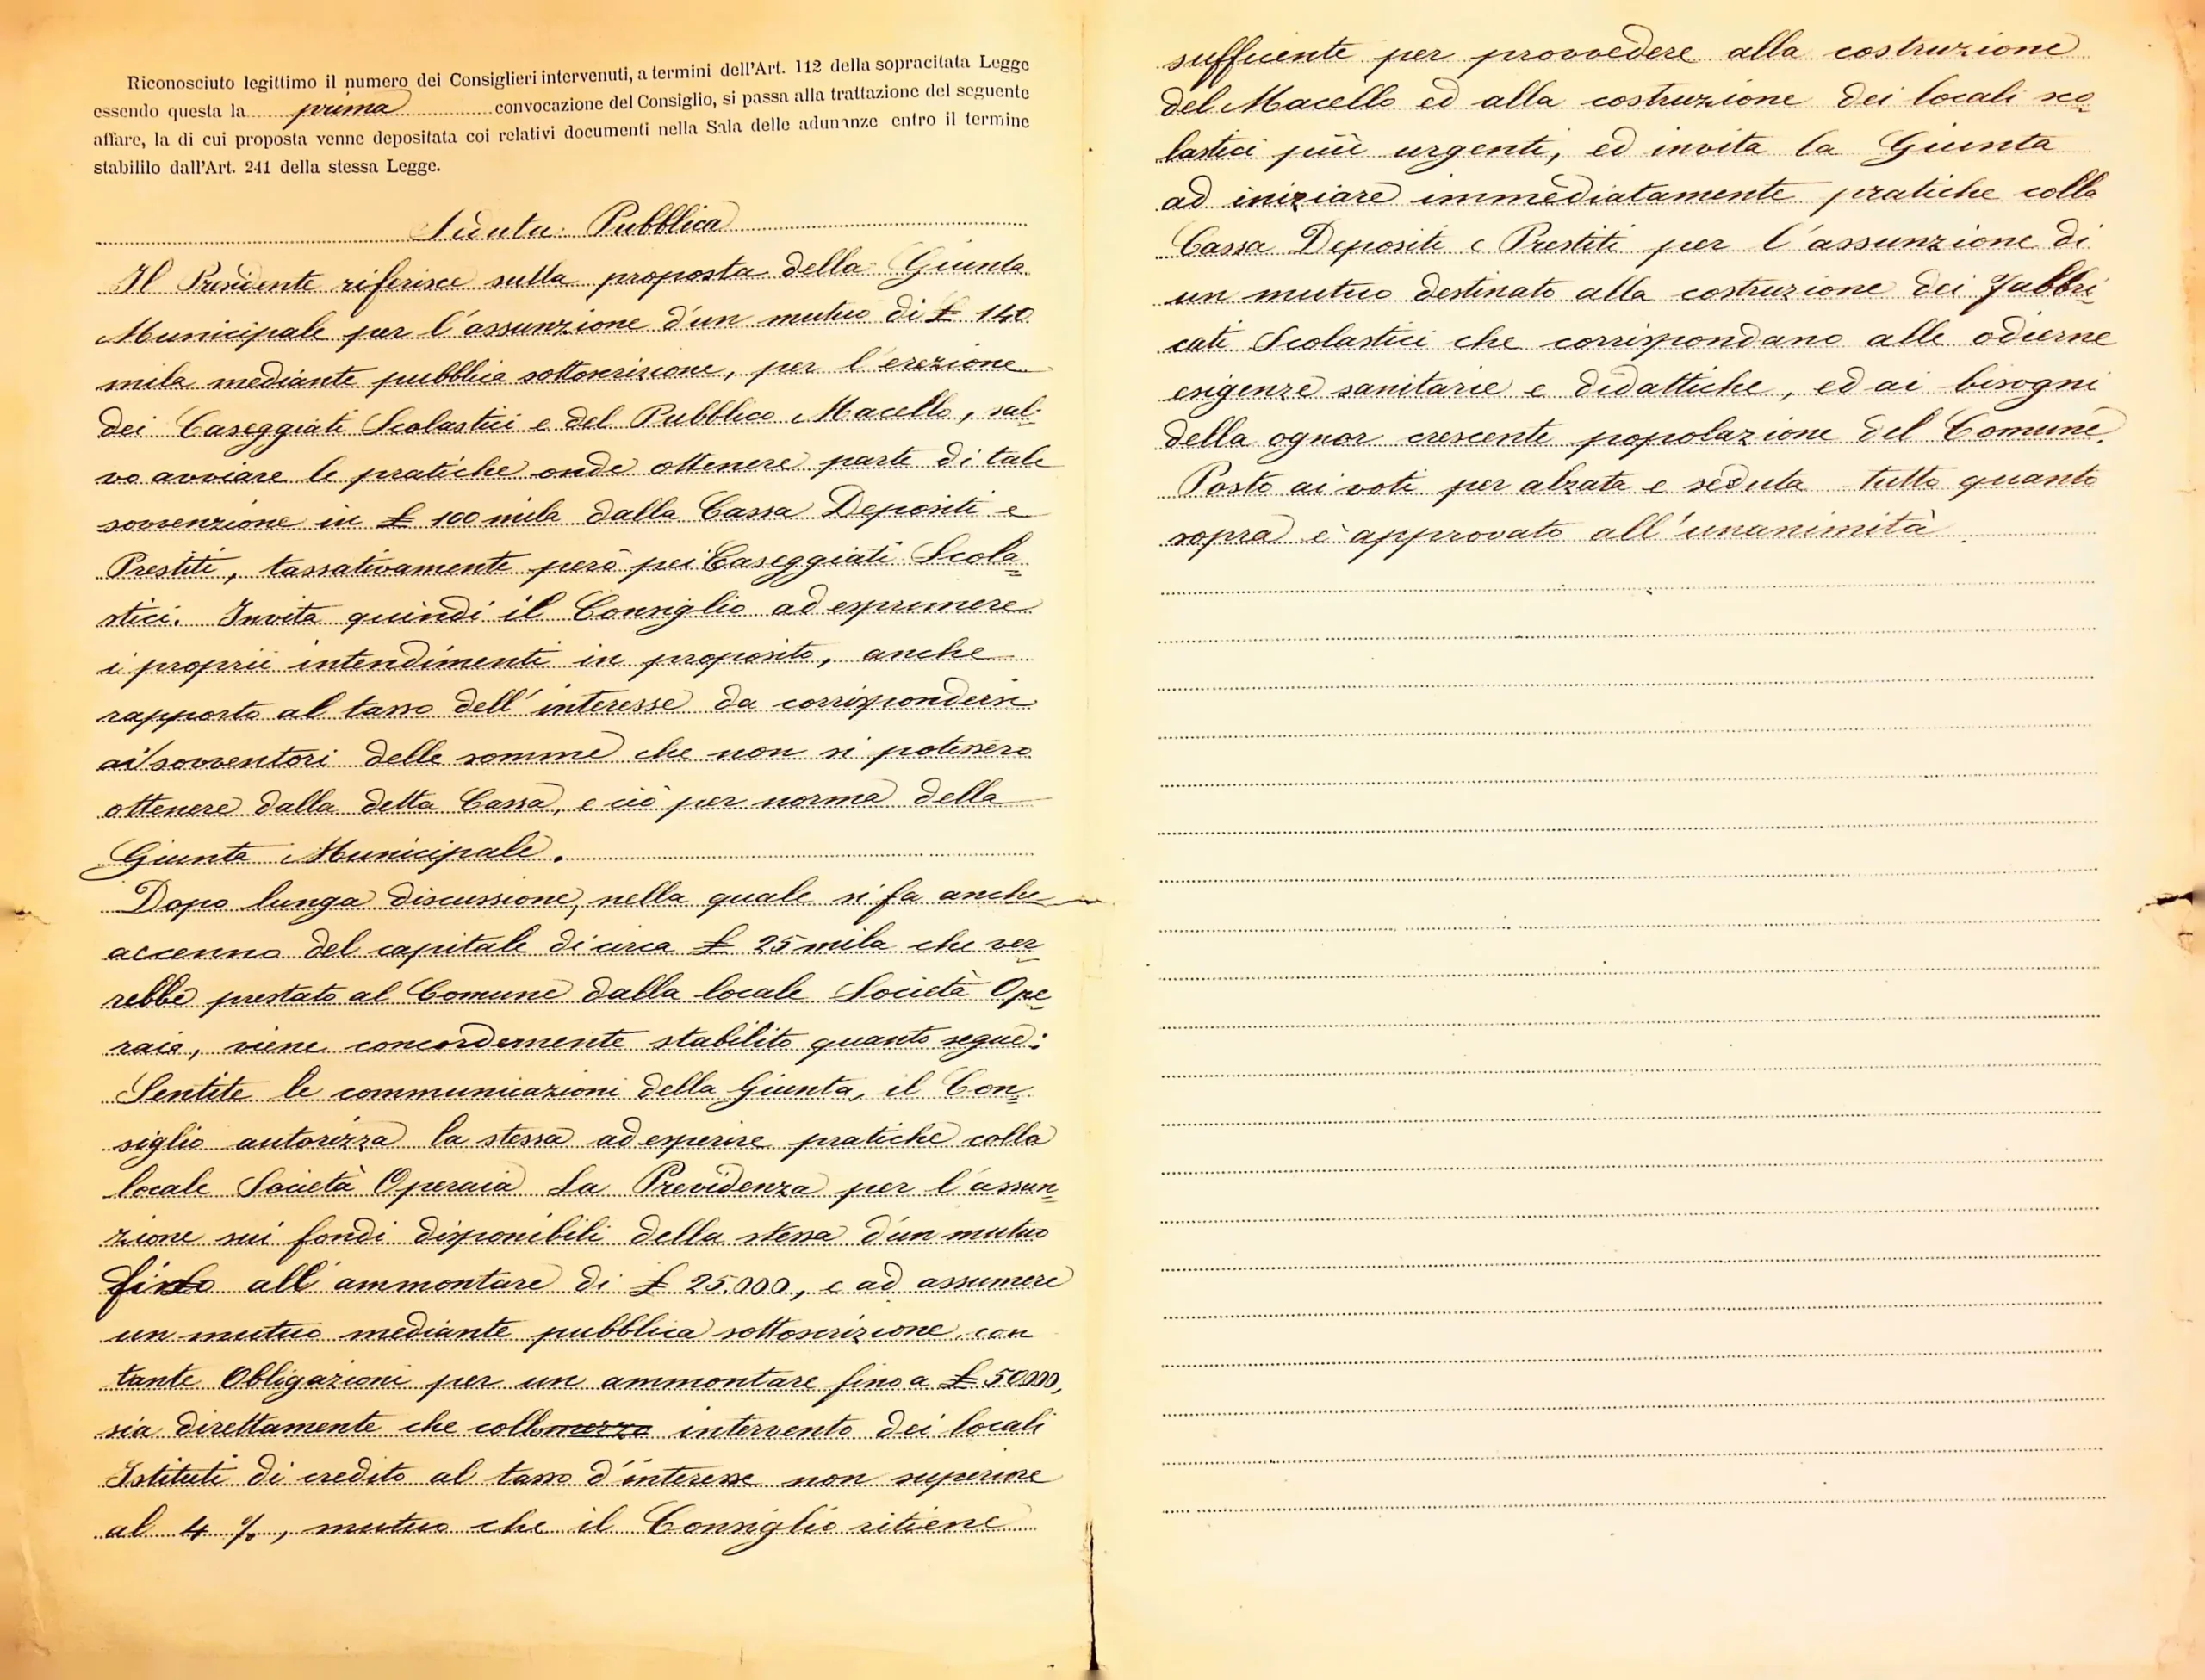 Riconosciuto legittimo il numero dei Consiglieri intervenuti, a termini dell'Art. 112 della sopracitata Legge
essendo questa la prima convocazione del Consiglio, si passa alla trattazione del seguente
affare, la di cui proposta venne depositata coi relativi documenti nella Sala delle adunanze entro il termine
stabililo dall'Art. 241 della stessa Legge.
Seduta: Pubblica
Il Presidente riferisce sulla proposta della Giunta
Municipale per l'assunzione d'un mutuo di £ 140
mila mediante pubblica sottoscrizione, per l'erezione
dei Caseggiati Scolastici e del Pubblico Macello, sal-
vo avviare le pratiche onde ottenere parte di tale
sovvenzione in £ 100 mila dalla Cassa Depositi e
Prestiti, tassativamente però pei Caseggiati Scola=
stici. Invita quindi il Consiglio ad esprimere
i proprii intendimenti in proposito, anche
rapporto al tasso dell'interesse da corrispondersi
ai sovventori delle somme che non si potessero
ottenere dalla detta Cassa, e ciò per norma della
Giunta Municipale.
Dopo lunga discussione, nella quale si fa anche
accenno del capitale di circa £ 25 mila che ver=
rebbe prestato al Comune dalla locale Società Ope=
raia, viene concordemente stabilito quanto segue:
Sentite le communicazioni della Giunta, il Con=
siglio autorizza la stessa ad esperire pratiche colla
locale Società Operaia La Previdenza per l'assun=
zione sui fondi disponibili della stessa d'un mutuo
fino all'ammontare di £ 25.000, e ad assumere
un mutuo mediante pubblica sottoscrizione con
tante Obligazioni per un ammontare fino a £ 50000,
sia direttamente che coll mezzo intervento dei locali
Istituti di credito al tasso d'interesse non superiore
al 4 %, mutuo che il Consiglio ritiene
sufficente per provvedere alla costruzione
del Macello ed alla costruzione dei locali sco=
lastici più urgenti, ed invita la Giunta
ad iniziare immediatamente pratiche colla
Cassa Depositi e Prestiti per l'assunzione di
un mutuo destinato alla costruzione dei Fabbri=
cati Scolastici che corrispondano alle odierne
esigenze sanitarie e didattiche, ed ai bisogni
della ognor crescente popolazione del Comune.
Posto ai voti per alzata e seduta tutto quanto
sopra è approvato all'unanimità.